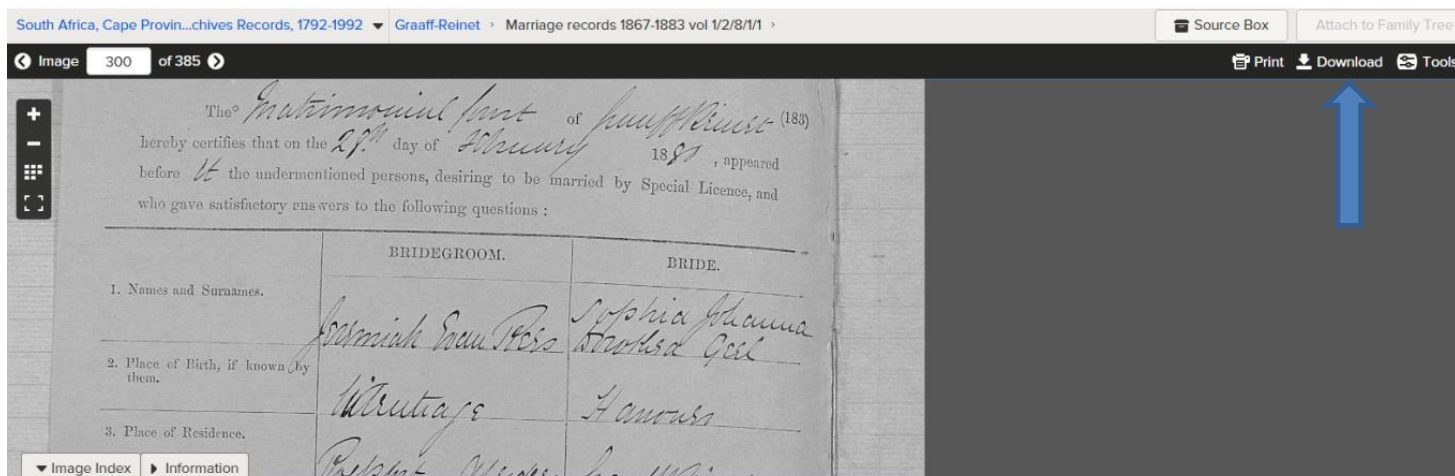 South Africa, Cape Provin...chives Records, 1792-1992 Graaff-Reinet › Marriage records 1867-1883 vol 1/2/8/1/1 ›
Source Box
Attach to Family Tree
Image 300 of 385
Print Download Tools
The Matrimonial Court of Graaff Reinet (183)
hereby certifies that on the 28th day of February 1880, appeared
before It the undermentioned persons, desiring to be married by Special Licence, and
who gave satisfactory answers to the following questions :
BRIDEGROOM. BRIDE.
1. Names and Surnames.
Jeremiah Evan Rees Sophia Johanna
Dorothea Geel
2. Place of Birth, if known by
them.
Uitenhage Hanover
3. Place of Residence.
Image Index Information